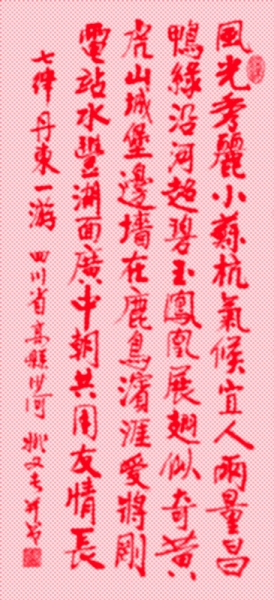 風光秀麗小蘇杭氣候宜人兩量昌
鴨綠沿河超碧玉鳳凰展翅似奇黃
虎山城堡邊墻在鹿鳥濱涯愛將剛
電站水豐湖面廣中朝共用友情長
七律丹東一游 四川省高縣沙河